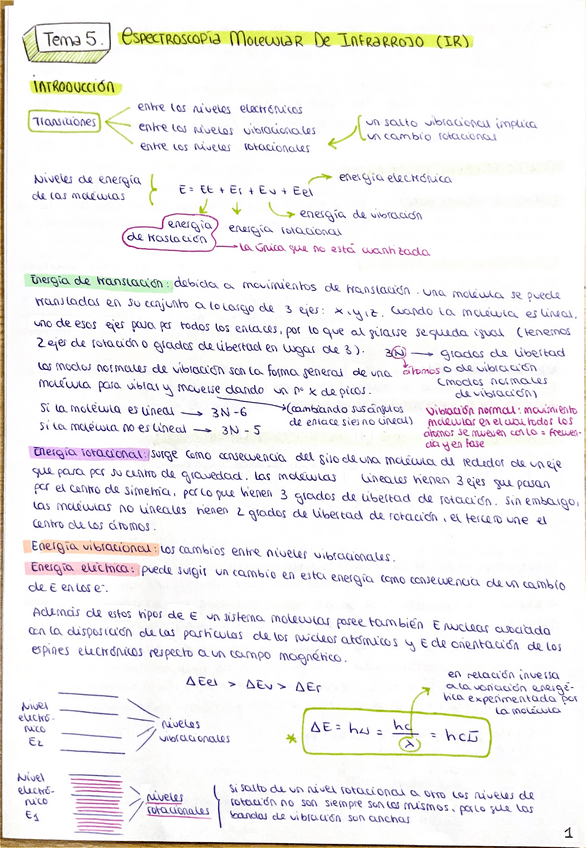 Tema 5. ESPECTROSCOPIA MOLECULAR DE INFRARROJO (IR)
INTRODUCCIÓN
Transiciones
entre los niveles electrónicos
entre los niveles vibracionales
entre los niveles rotacionales
un salto vibracional implica
un cambio rotacional
Niveles de energía
de las moléculas
E = Et + Er + Ev + Eel
energía electrónica
energía de vibración
energía rotacional
energía
de traslación
la única que no está cuantizada
Energía de translación: debida a movimientos de translación. Una molécula se puede
transladas en su conjunto a lo largo de 3 ejes: x, y, z. Cuando la molécula es lineal,
uno de esos ejes pasa por todos los enlaces, por lo que al girarse se queda igual (tenemos
2 ejes de rotación o grados de libertad en lugar de 3).
3N → grados de libertad
átomos o de vibración
(modos normales
de vibración)
los modos normales de vibración son la forma general de una
molécula para vibrar y moverse dando un nº x de picos.
Si la molécula es lineal → 3N-6
Si la molécula no es lineal → 3N-5
(cambiando sus ángulos
de enlace si es no lineal)
Vibración normal: movimiento
molecular en el cual todos los
átomos se mueven con la = frecuen-
cia y en fase
Energía rotacional: surge como consecuencia del giro de una molécula alrededor de un eje
que pasa por su centro de gravedad. Las moléculas lineales tienen 3 ejes que pasan
por el centro de simetría, por lo que tienen 3 grados de libertad de rotación. Sin embargo,
las moléculas no lineales tienen 2 grados de libertad de rotación, el tercero une el
centro de los átomos.
Energía vibracional: los cambios entre niveles vibracionales.
Energía eléctrica: puede surgir un cambio en esta energía como consecuencia de un cambio
de E en los e-.
Además de estos tipos de E un sistema molecular posee también E nuclear asociada
con la disposición de las partículas de los núcleos atómicos y E de orientación de los
espines electrónicos respecto a un campo magnético.
ΔEel > ΔEv > ΔEr
en relación inversa
a la variación energé-
tica experimentada por
la molécula
Nivel
electró-
nico
E2
niveles
vibracionales
* ΔE = hν = hc/λ = hcν̄
Nivel
electró-
nico
E1
niveles
rotacionales
Si salto de un nivel rotacional a otro los niveles de
rotación no son siempre son los mismos, por lo que las
bandas de vibración son anchas
1